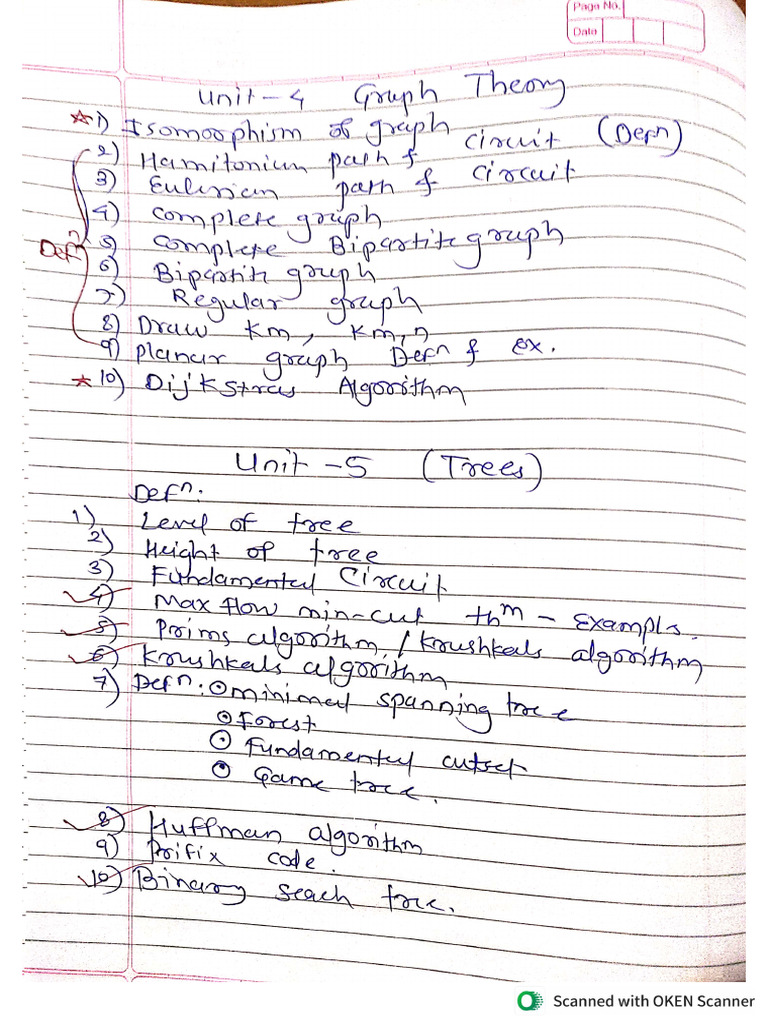 Page No.
Date
Unit - 4 Graph Theory
☆ 1) Isomorphism of graph
2) Hamitonium path & circuit (Defn)
3) Eulerian path & circuit
4) Complete graph
Defn 5) Complete Bipartite graph
6) Bipartite graph
7) Regular graph
8) Draw Km, Km,n
9) Planar graph Defn & ex.
★ 10) Dijkstras Algorithm
Unit - 5 (Trees)
Defn.
1) Level of tree
2) Height of tree
3) Fundamental Circuit
4) Max flow min-cut thm - Example.
5) Prims algorithm / Krushkals algorithm
6) Krushkals algorithm
7) Defn. ⊙ minimal spanning tree
⊙ Forest
⊙ Fundamental cutset
⊙ Game tree.
8) Huffman algorithm
9) Prifix code.
10) Binary seach tree.
Scanned with OKEN Scanner